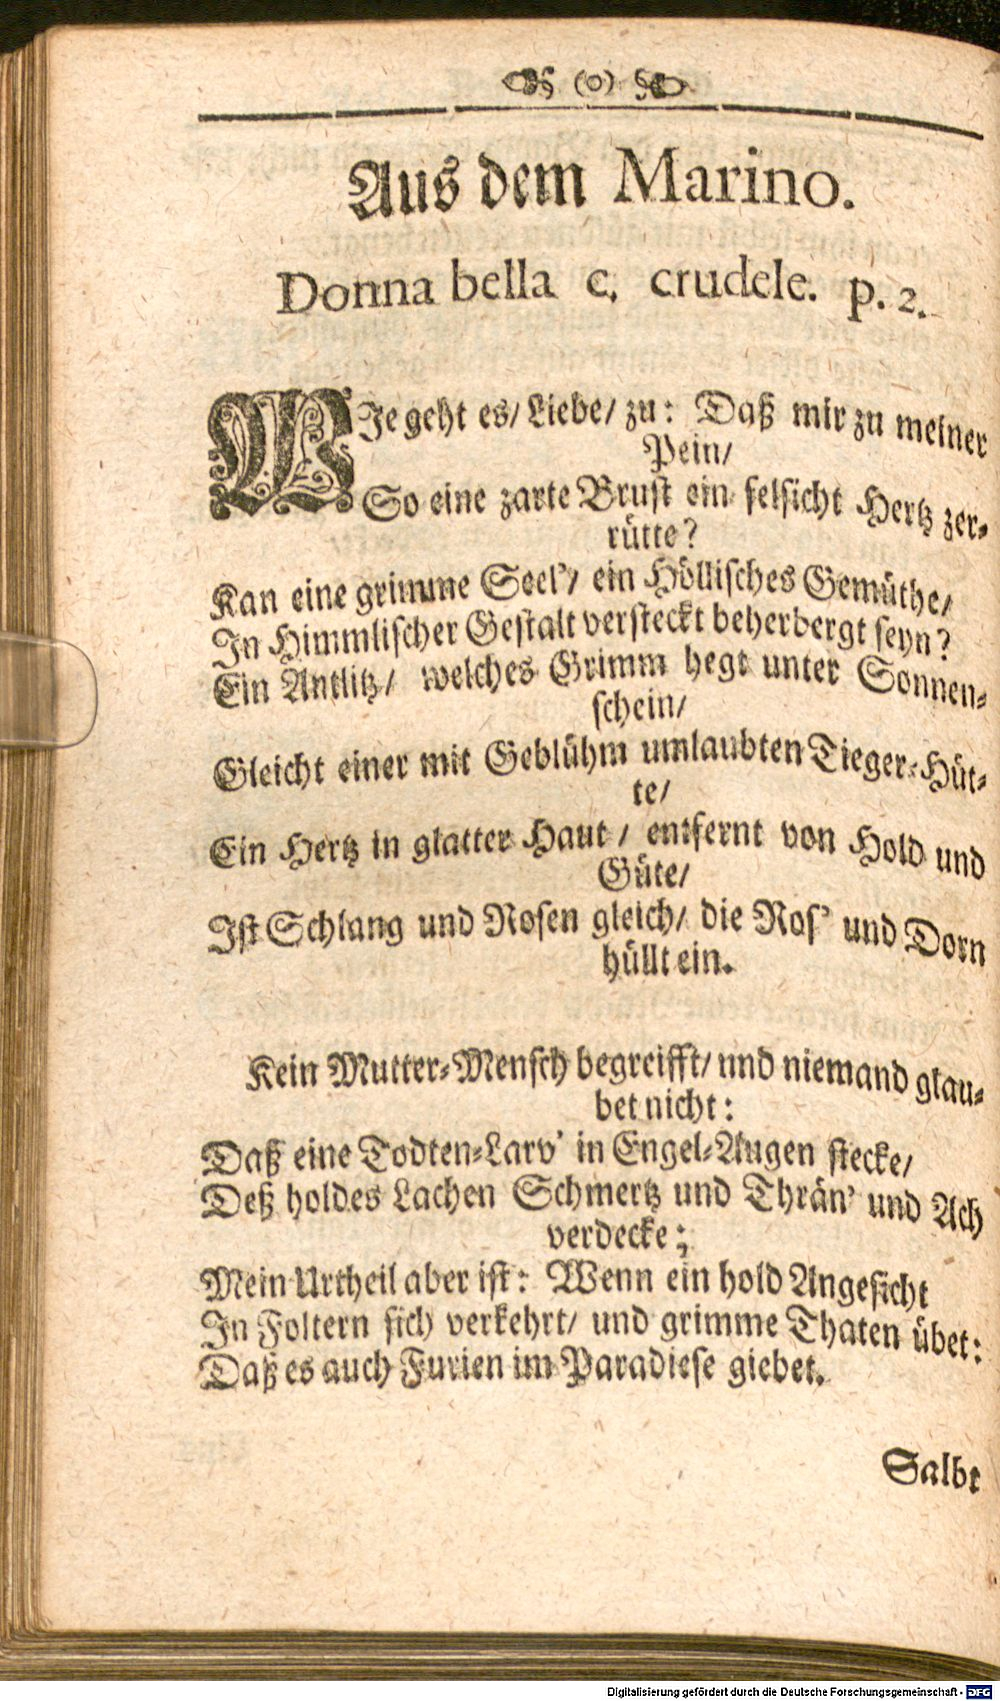 (o)
Aus dem Marino.
Donna bella e, crudele. p. 2.
WJe geht es/ Liebe/ zu: Daß mir zu meiner
Pein/
So eine zarte Brust ein felsicht Hertz zer-
rütte?
Kan eine grimme Seel’/ ein Höllisches Gemüthe/
Jn Himmlischer Gestalt versteckt beherbergt seyn?
Ein Antlitz/ welches Grimm hegt unter Sonnen-
schein/
Gleicht einer mit Geblühm umlaubten Tieger-Hüt-
te/
Ein Hertz in glatter Haut / entfernt von Hold und
Güte/
Jst Schlang und Rosen gleich/ die Ros’ und Dorn
hüllt ein.
Kein Mutter-Mensch begreifft/ und niemand glau-
bet nicht:
Daß eine Todten-Larv’ in Engel-Augen stecke/
Deß holdes Lachen Schmertz und Thrän’ und Ach
verdecke;
Mein Urtheil aber ist: Wenn ein hold Angesicht
Jn Foltern sich verkehrt/ und grimme Thaten übet:
Daß es auch Furien im Paradiese giebet.
Salbt
Digitalisierung gefördert durch die Deutsche Forschungsgemeinschaft - DFG